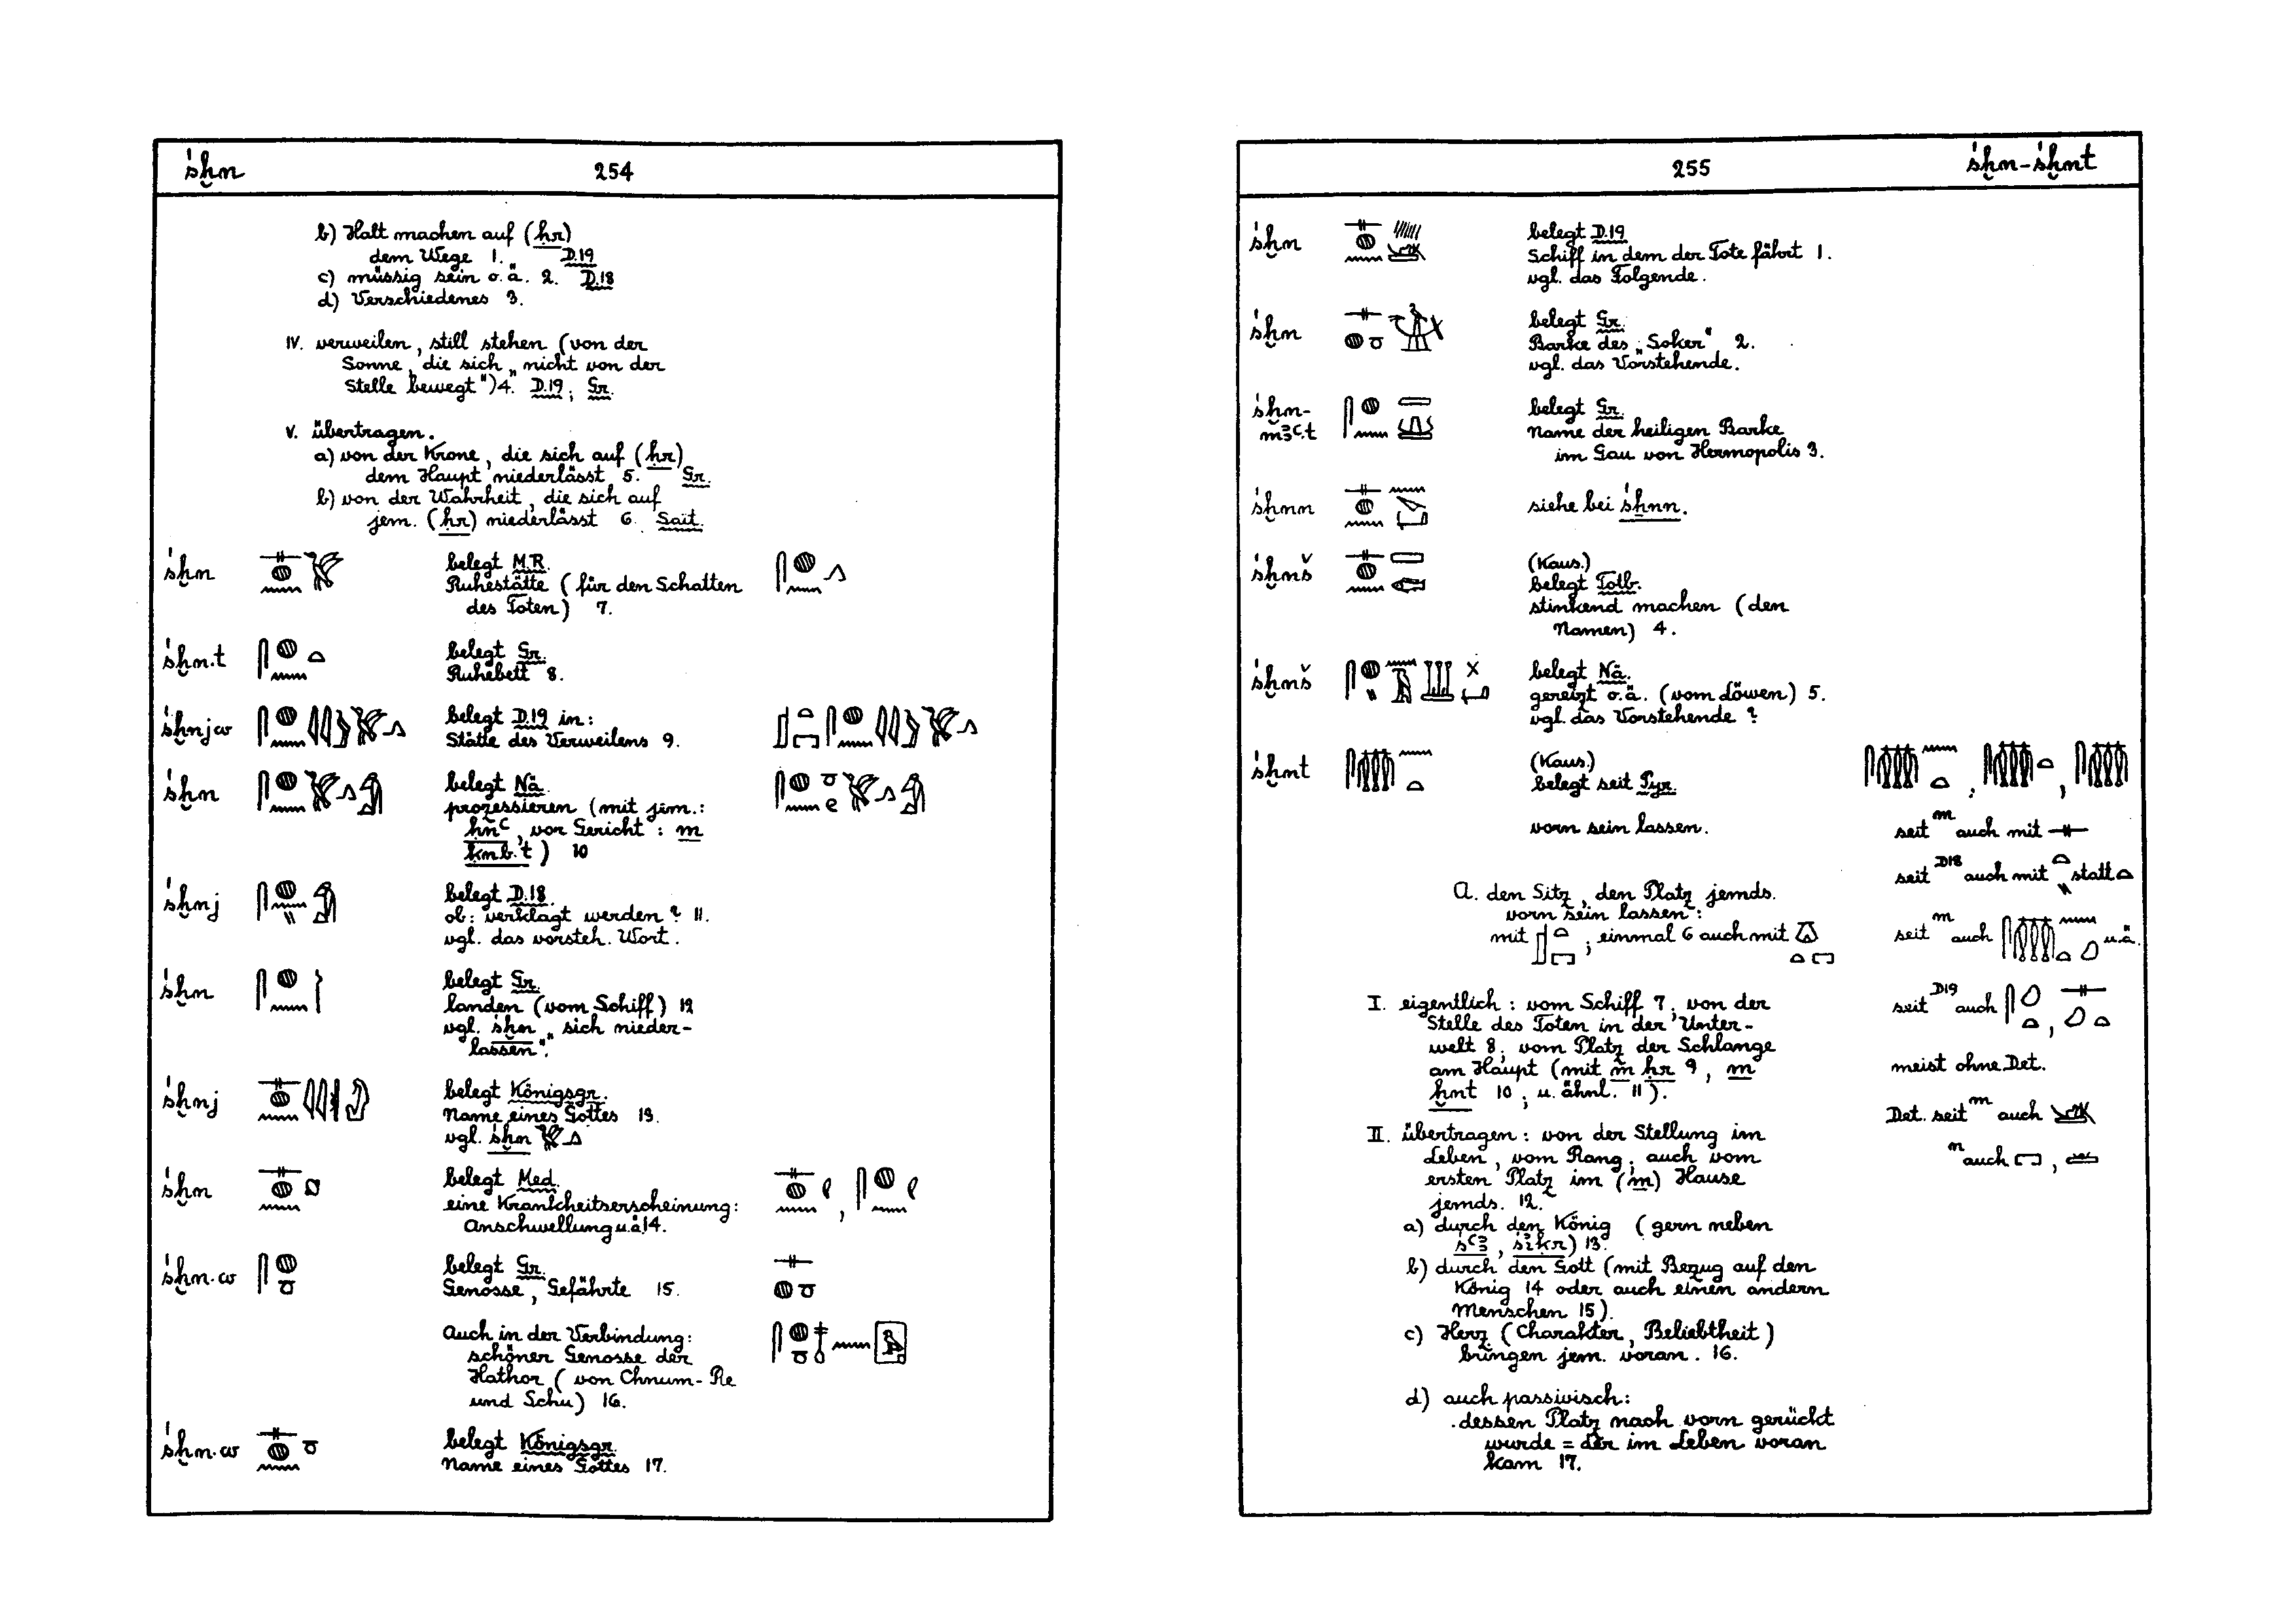 śḫn
254
b) Halt machen auf (ḥr)
dem Wege 1. D.19
c) müssig sein o.ä. 2. D.18
d) Verschiedenes 3.
IV. verweilen, still stehen (von der
Sonne, die sich „nicht von der
Stelle bewegt“) 4. D.19; Gr.
V. übertragen.
a) von der Krone, die sich auf (ḥr)
dem Haupt niederlässt 5. Gr.
b) von der Wahrheit, die sich auf
jem. (ḥr) niederlässt 6. Sait.
śḫn
belegt M.R.
Ruhestätte (für den Schatten
des Toten) 7.
śḫn.t
belegt Gr.
Ruhebett 8.
śḫnjw
belegt D.19 in:
Stätte des Verweilens 9.
śḫn
belegt Nä.
prozessieren (mit jem.:
ḥnꜥ, vor Gericht: m
ḳnb.t) 10
śḫnj
belegt D.18.
ob: verklagt werden? 11.
vgl. das vorsteh. Wort.
śḫn
belegt Gr.
landen (vom Schiff) 12
vgl. śḫn „sich nieder-
lassen“.
śḫnj
belegt Königsgr.
Name eines Gottes 13.
vgl. śḫn
śḫn
belegt Med.
eine Krankheitserscheinung:
Anschwellung u.ä. 14.
śḫn.w
belegt Gr.
Genosse, Gefährte 15.
Auch in der Verbindung:
schöner Genosse der
Hathor (von Chnum-Re
und Schu) 16.
śḫn.w
belegt Königsgr.
Name eines Gottes 17.
255
śḫn-śḫnt
śḫn
belegt D.19
Schiff in dem der Tote fährt 1.
vgl. das Folgende.
śḫn
belegt Gr.
Barke des „Soker“ 2.
vgl. das Vorstehende.
śḫn-
mꜣꜥ.t
belegt Gr.
Name der heiligen Barke
im Gau von Hermopolis 3.
śḫnn
siehe bei śḫnn.
śḫnš
(Kaus.)
belegt Totb.
stinkend machen (den
Namen) 4.
śḫnš
belegt Nä.
gereizt o.ä. (vom Löwen) 5.
vgl. das Vorstehende?
śḫnt
(Kaus.)
belegt seit Pyr.
vorn sein lassen.
seit m auch mit
seit D18 auch mit statt
A. den Sitz, den Platz jemds.
vorn sein lassen:
mit ; einmal 6 auch mit
seit m auch u.ä.
I. eigentlich: vom Schiff 7; von der
Stelle des Toten in der Unter-
welt 8; vom Platz der Schlange
am Haupt (mit m ḥr 9, m
ḫnt 10; u. ähnl. 11).
seit D19 auch
meist ohne Det.
Det. seit m auch
n auch
II. übertragen: von der Stellung im
Leben, vom Rang; auch vom
ersten Platz im (m) Hause
jemds. 12.
a) durch den König (gern neben
śꜥꜣ, śiḳr) 13.
b) durch den Gott (mit Bezug auf den
König 14 oder auch einen andern
Menschen 15).
c) Herz (Charakter, Beliebtheit)
bringen jem. voran. 16.
d) auch passivisch:
dessen Platz nach vorn gerückt
wurde = der im Leben voran
kam 17.